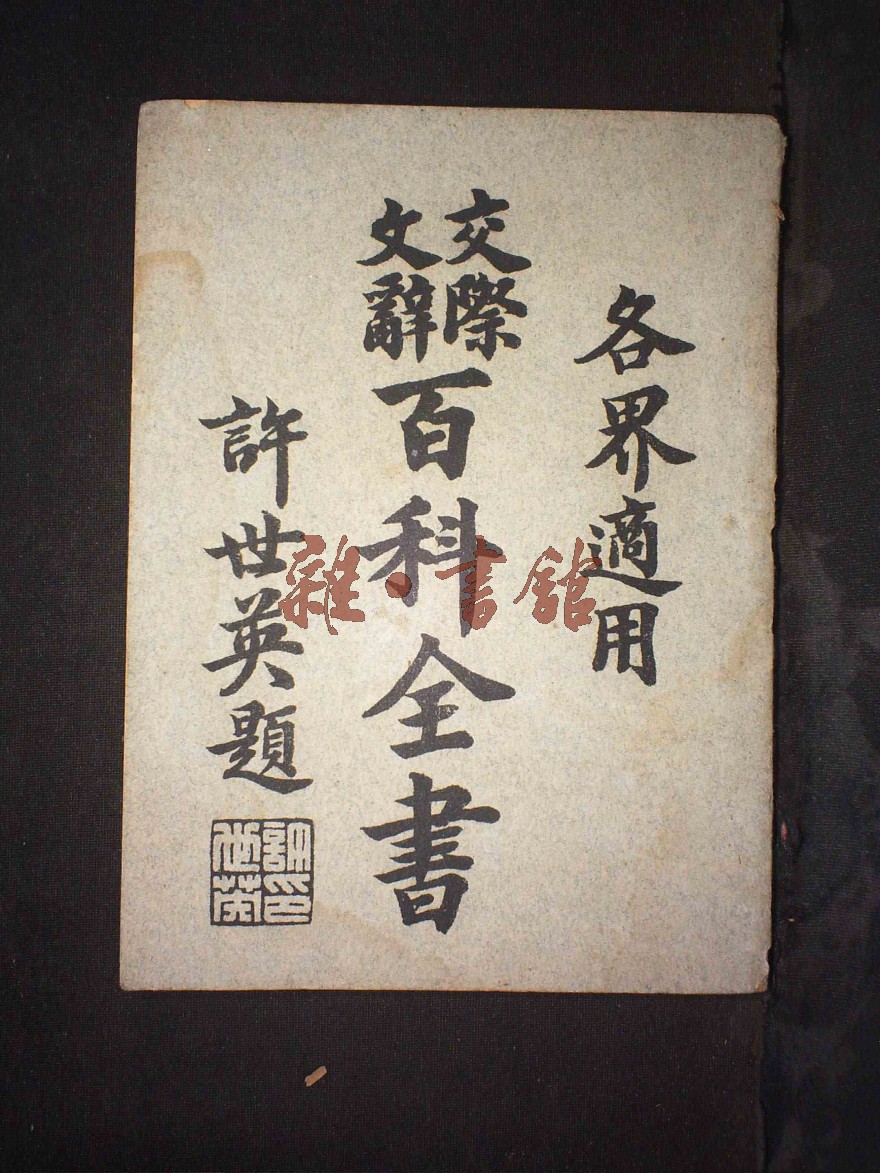 各界適用
交際
文辭
百科全書
許世英題
許世英印
雜·書館